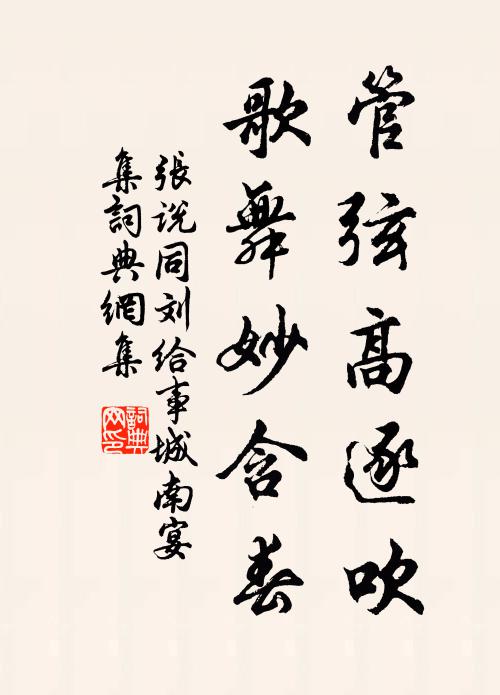 管弦高逐吹
歌舞妙含春
張说同刘给事城南宴
集詞典網集
詞典
网印